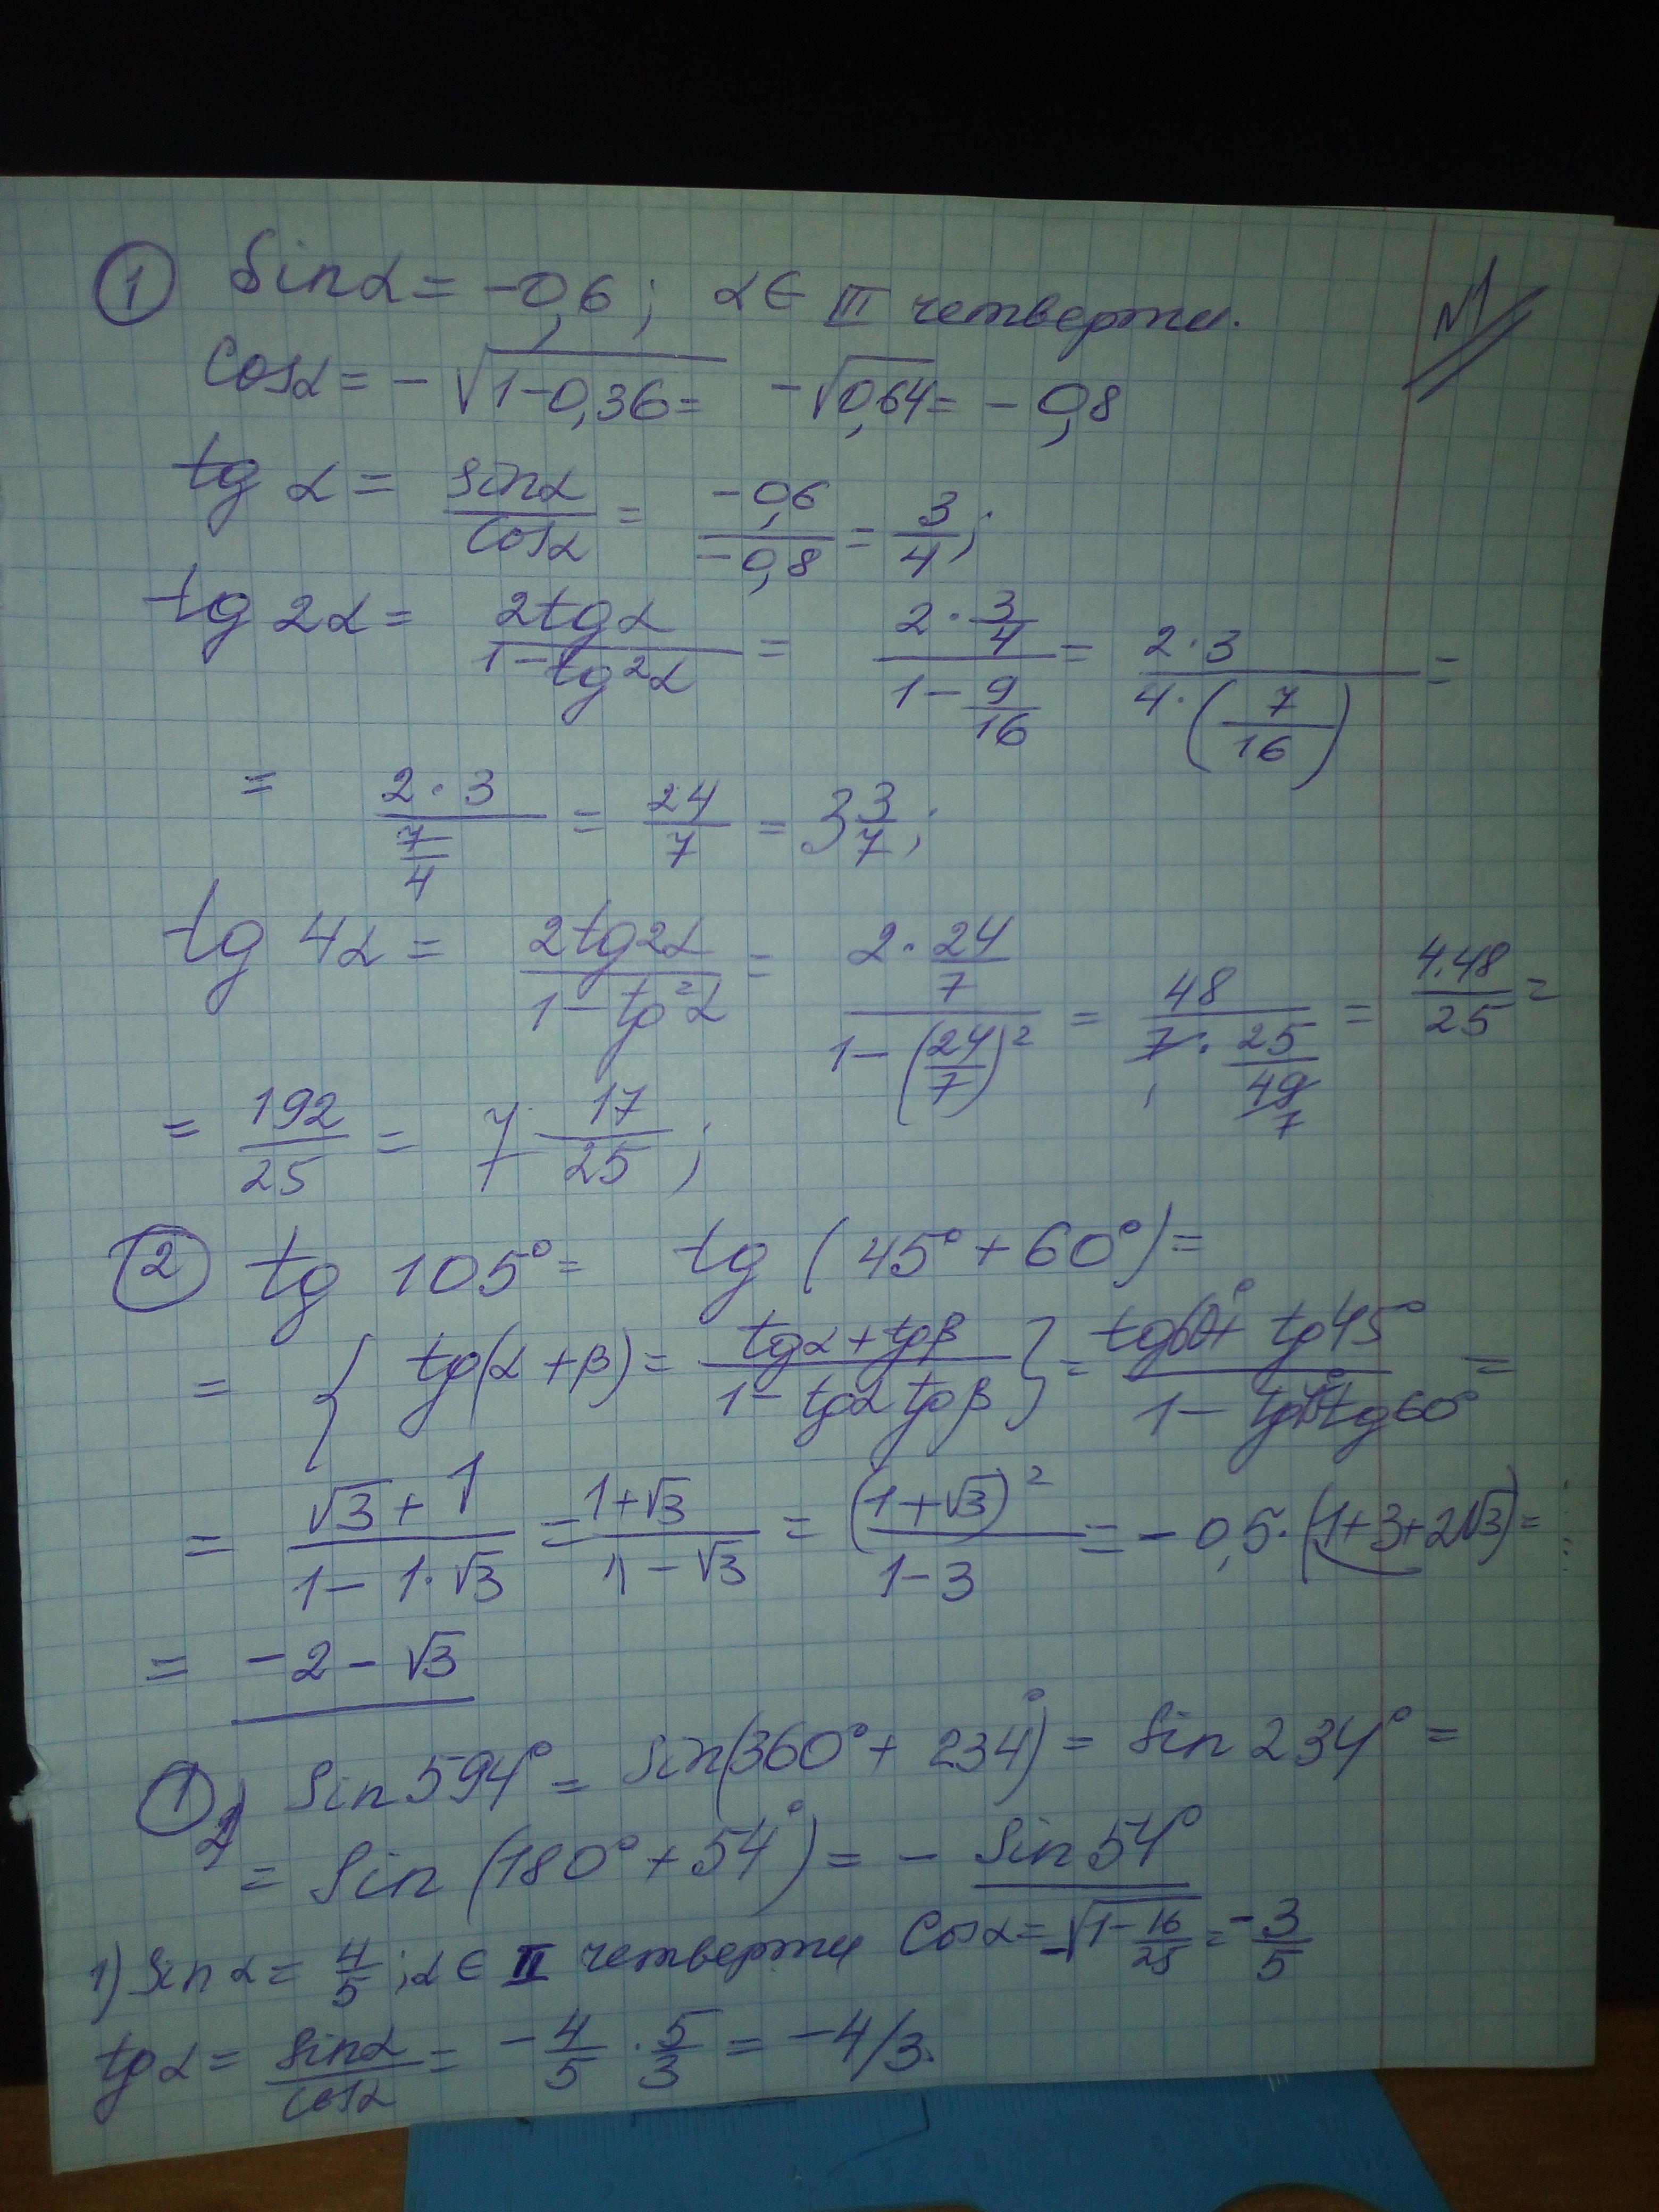 ① sinα = -0,6; α∈ III четверти. №1
cosα = -√(1-0,36) = -√0,64 = -0,8
tg α = sinα/cosα = -0,6/-0,8 = 3/4;
tg 2α = 2tgα/(1-tg²α) = (2·3/4)/(1-9/16) = (2·3)/(4·(7/16)) =
= (2·3)/(7/4) = 24/7 = 3 3/7;
tg 4α = 2tg2α/(1-tg²α) = (2·24/7)/(1-(24/7)²) = 48/(7·25/49) = 4.48/25 =
= 192/25 = 7 17/25;
② tg 105° = tg (45° + 60°) =
= { tg(α+β) = (tgα+tgβ)/(1-tgα tgβ) } = (tg60°+ tg45°)/(1 - tg45°tg60°) =
= (√3+1)/(1-1·√3) = (1+√3)/(1-√3) = (1+√3)²/(1-3) = -0,5·(1+3+2√3) =
= -2-√3
① sin594° = sin(360°+ 234°) = sin 234° =
2) = sin (180°+54°) = - sin54°
1) sin α = 4/5; α∈ II четверти cosα = -√(1-16/25) = -3/5
tg α = sinα/cosα = -4/5 · 5/3 = -4/3.